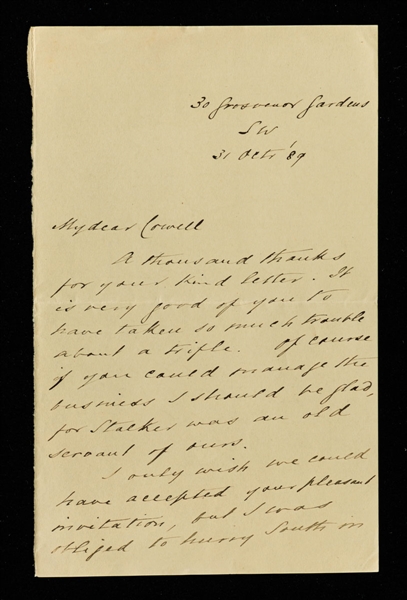 30 Grosvenor Gardens
SW
31 Octr '89
My dear Cowell
A thousand thanks
for your kind letter. It
is very good of you to
have taken so much trouble
about a trifle. Of course
if you could manage the
business I should be glad,
for Stalker was an old
servant of ours.
I only wish we could
have accepted your pleasant
invitation, but I was
obliged to hurry South in